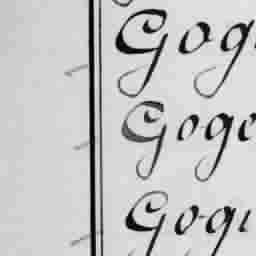 Gog
Goge
Gogi